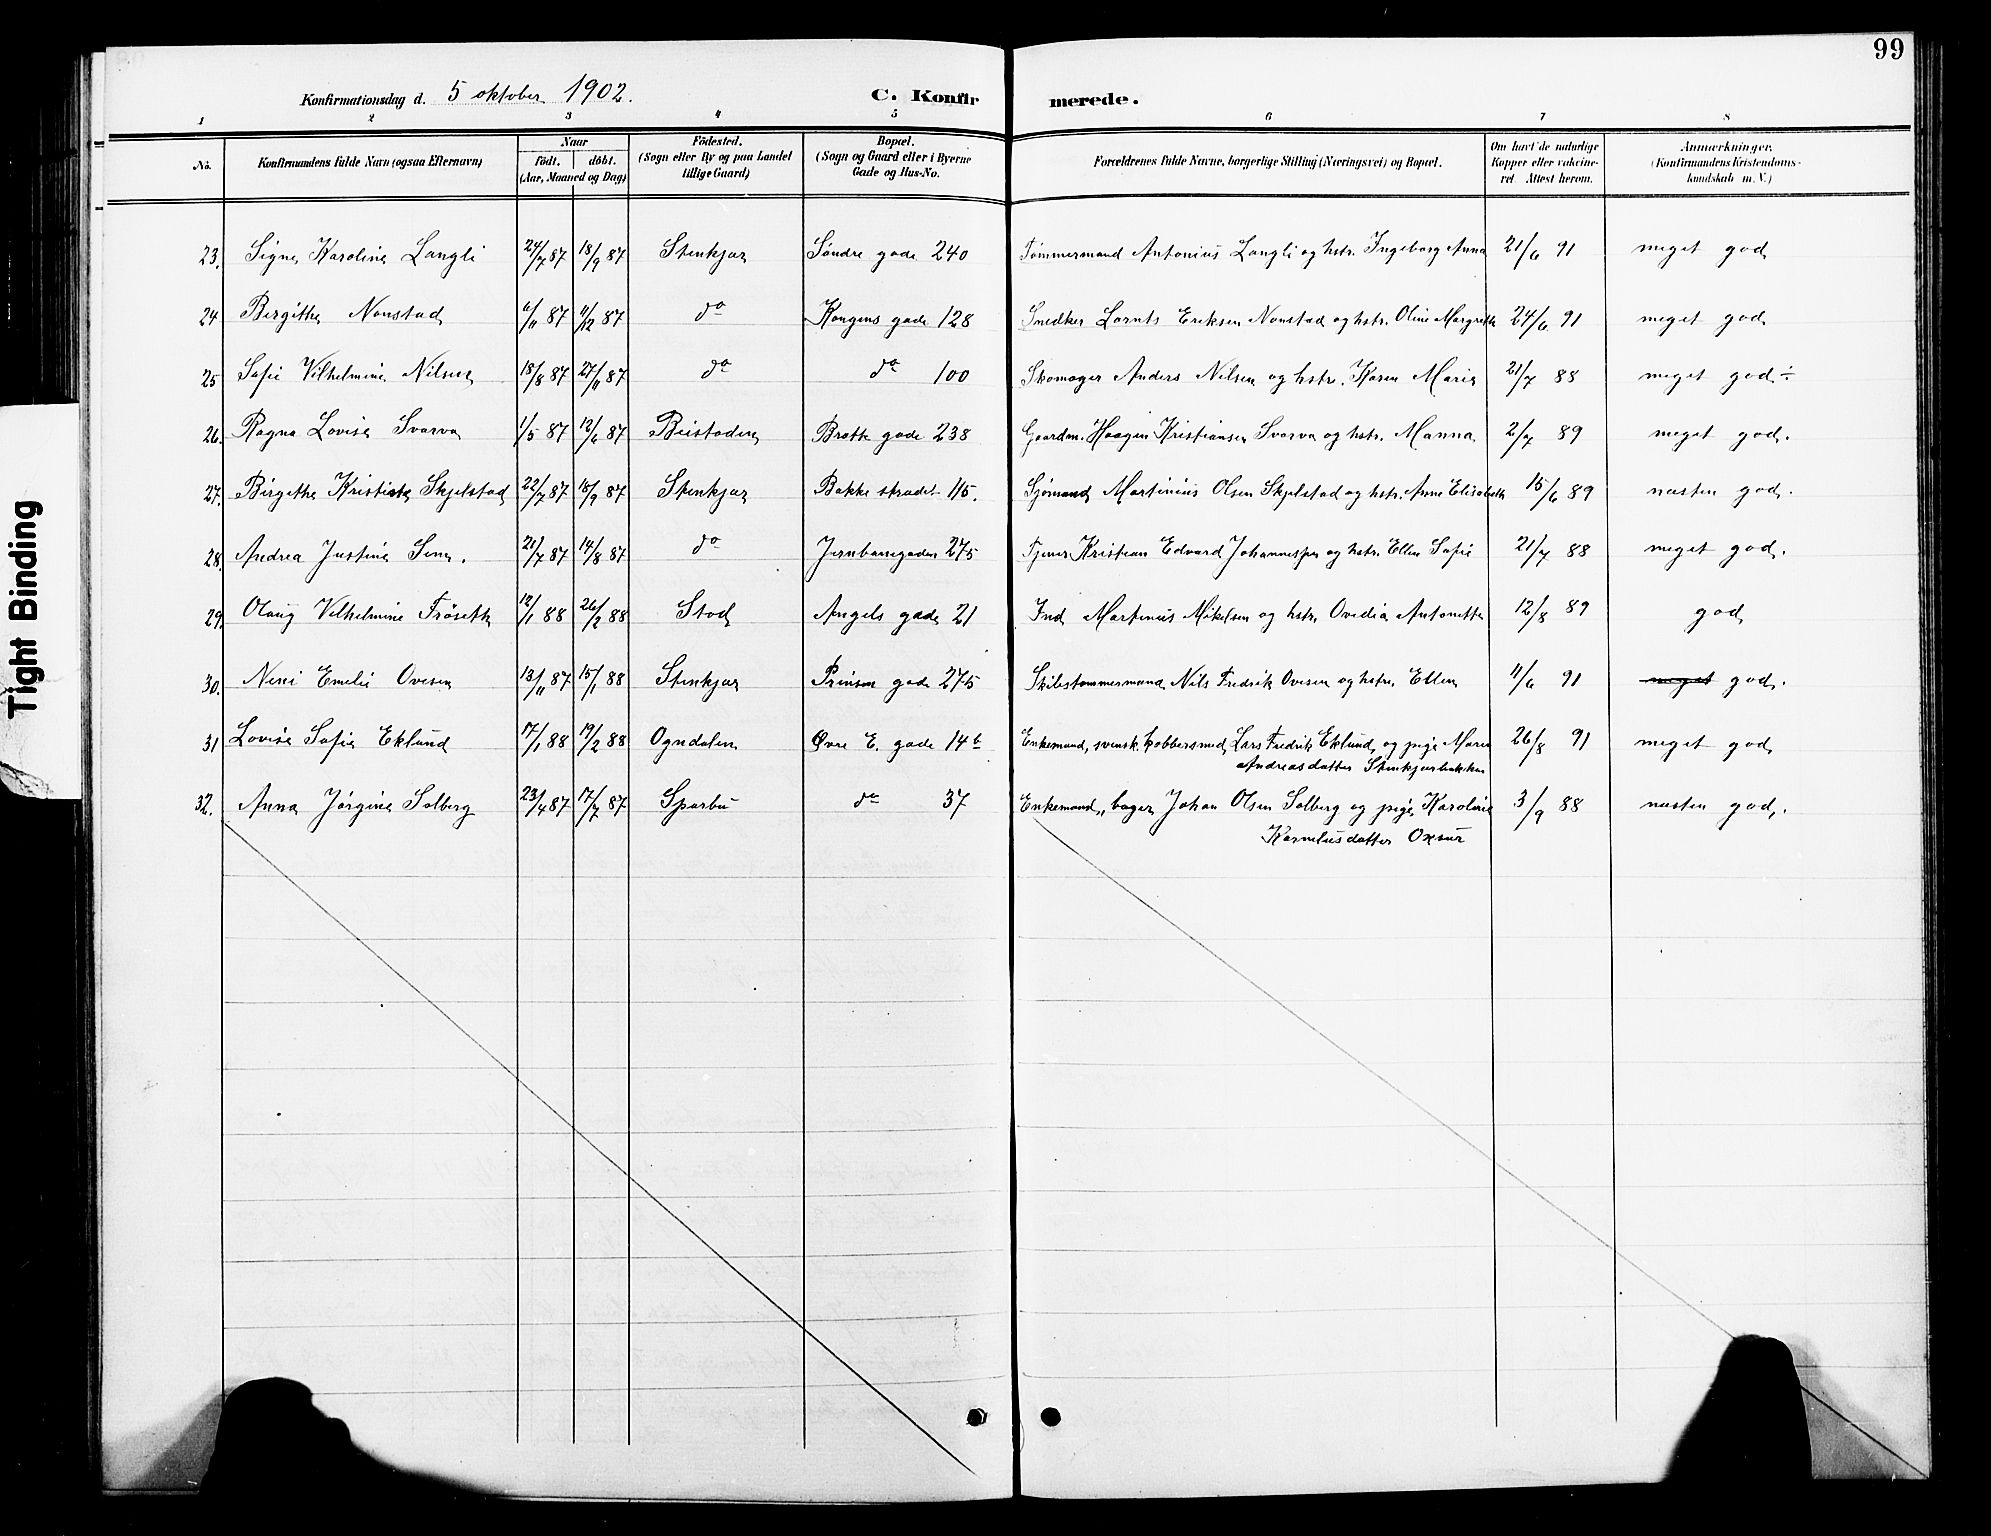 99
Konfirmationsdag d. 5 oktober 1902. C. Konfir merede.
1 2 3 4 5 6 7 8
No. Konfirmandens fulde Navn (ogsaa Efternavn) Naar födt. döbt. (Aar, Maaned og Dag) Födested. (Sogn eller By og paa Landet tillige Gaard) Bopæl. (Sogn og Gaard eller i Byerne Gade og Hus-No. Forældrenes fulde Navne, borgerlige Stilling (Næringsvei) og Bopæl. Om havt de naturlige Kopper eller vakcineret. Attest herom. Anmærkninger. (Konfirmandens Kristendomskundskab m. V.)
23. Signe Karoline Langli 24/7 87 18/9 87 Stenkjær Søndre gade 240 Tømmermand Antonius Langli og hstr. Ingeborg Anna 21/6 91 meget god
24 Birgithe Nonstad 6/11 87 11/12 87 do Kongens gade 128 Snedker Lornts Eriksen Nonstad og hstr. Oline Margreth 24/6 91 meget god
25 Sofie Vilhelmine Nilsen 18/8 87 27/11 87 do do 100 Skomager Anders Nilsen og hstr. Karen Marie 21/7 88 meget god ÷
26. Ragna Lovise Svarva 1/5 87 12/6 87 Beistaden Bratte gade 238 Gaardm. Haagen Kristiansen Svarva og hstr. Manna 2/7 89 meget god.
27. Birgithe Kristine Skjelstad 22/7 87 18/9 87 Stenkjær Bakke strædet 115. Sjømand Martinius Olsen Skjelstad og hstr. Anne Elisabeth 15/6 89 næsten god.
28. Andrea Justine Sem. 21/7 87 14/8 87 do Jernbanegaden 275 Tjener Kristian Edvard Johannessen og hstr. Ellen Sofie 21/7 88 meget god.
29. Olaug Vilhelmine Frøseth 12/1 88 26/2 88 Stod Angels gade 21 Ind. Martinus Mikelsen og hstr. Ovedia Antonette 12/8 89 god
30. Nini Emelie Ovesen 13/11 87 15/1 88 Stenkjær Prinsen gade 275 Skibstømmermand Nils Fredrik Ovesen og hstr. Ellen 11/6 91 meget god.
31 Lovise Sofie Eklund 17/1 88 19/2 88 Ogndalen Øvre E. gade 14b Enkemand, svensk. kobbersmed Lars Fredrik Eklund og pige Maren
Andreasdatter Stenkjærbakken 26/8 91 meget god
32. Anna Jørgine Solberg 23/4 87 17/7 87 Sparbu do 37 Enkemand, bager Johan Olsen Solberg og pige Karoline
Korneliusdatter Oxsur 3/9 88 næsten god.
Tight Binding